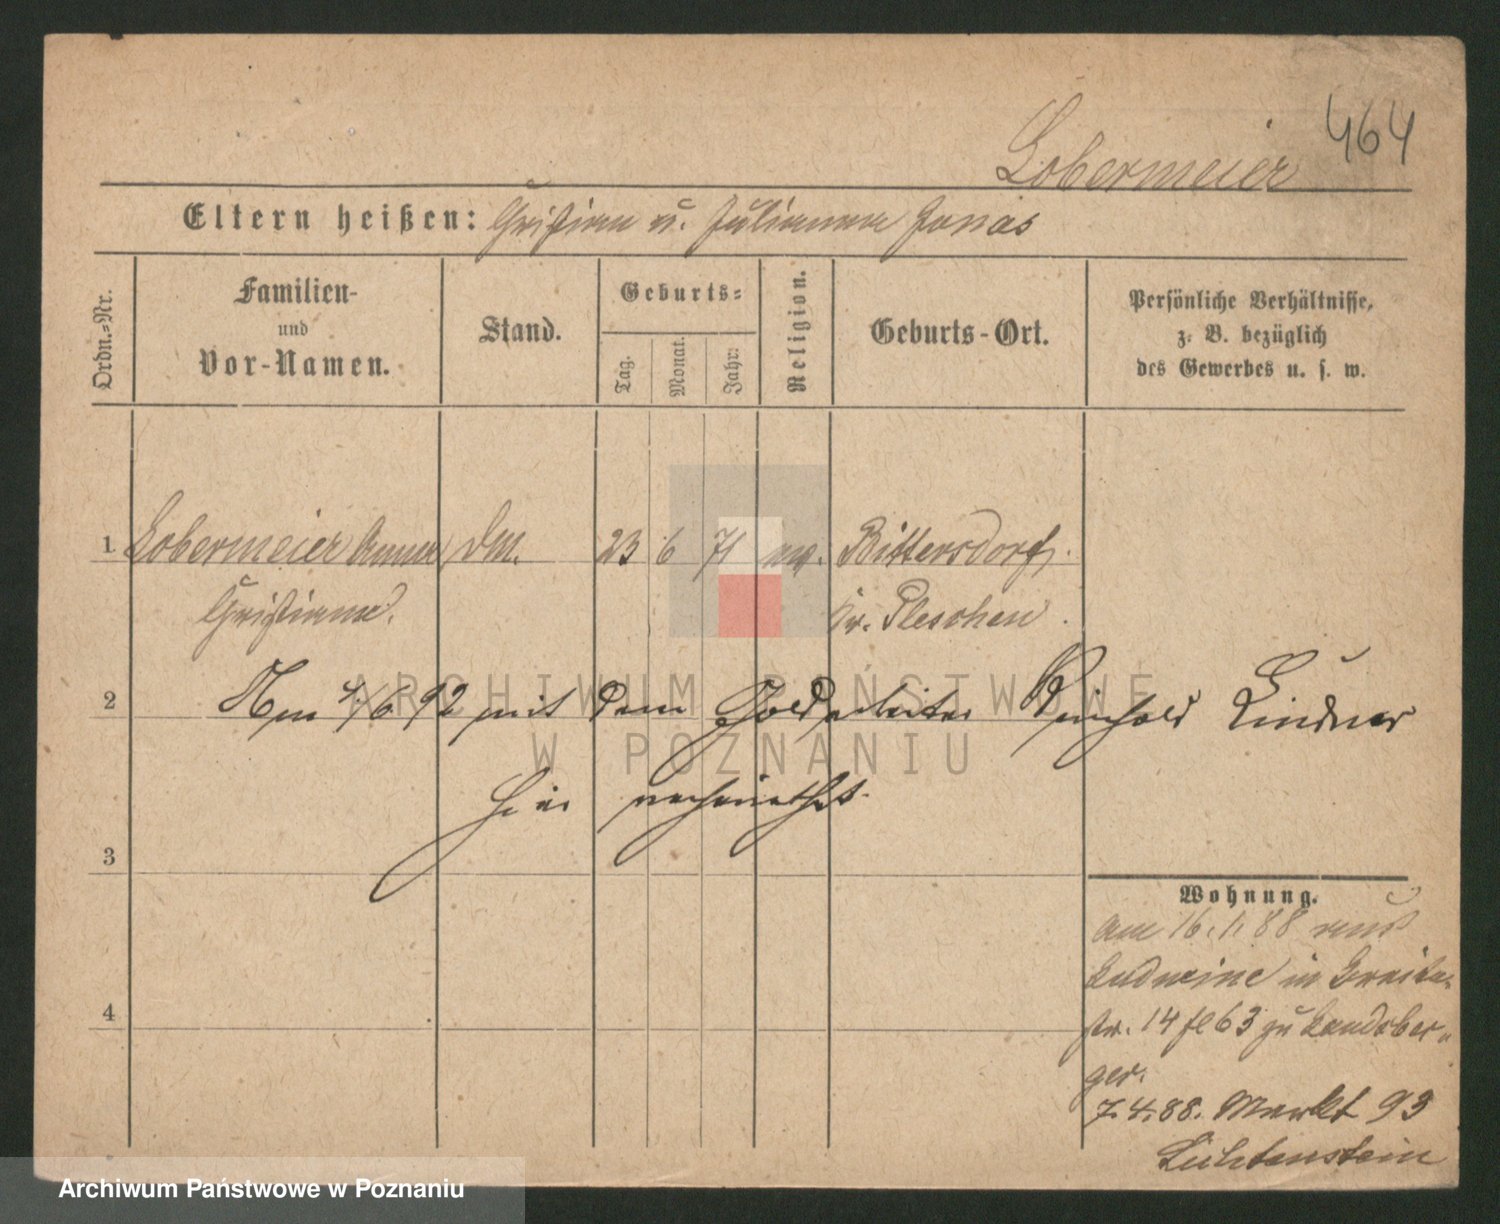 464
Lobermeier
Eltern heißen: Christian u. Julianna Jonas
Ordn.-Nr.
Familien-
und
Vor-Namen.
Stand.
Geburts-
Tag.
Monat.
Jahr.
Religion.
Geburts-Ort.
Persönliche Verhältnisse,
z. B. bezüglich
des Gewerbes u. s. w.
1 Lobermeier Anna 23 6 71 ev. Bittersdorf,
Christiana. Kr. Pleschen.
2 Am 4/6 92 mit dem Goldarbeiter Reinhold Lindner
hier verheirathet.
3
4
Wohnung.
am 16.1.88 aus
Ludwine in Breite-
str. 14 zu Landsber-
ger.
7.4.88. Markt 93
Lichtenstein
ARCHIWUM PAŃSTWOWE
W POZNANIU
Archiwum Państwowe w Poznaniu